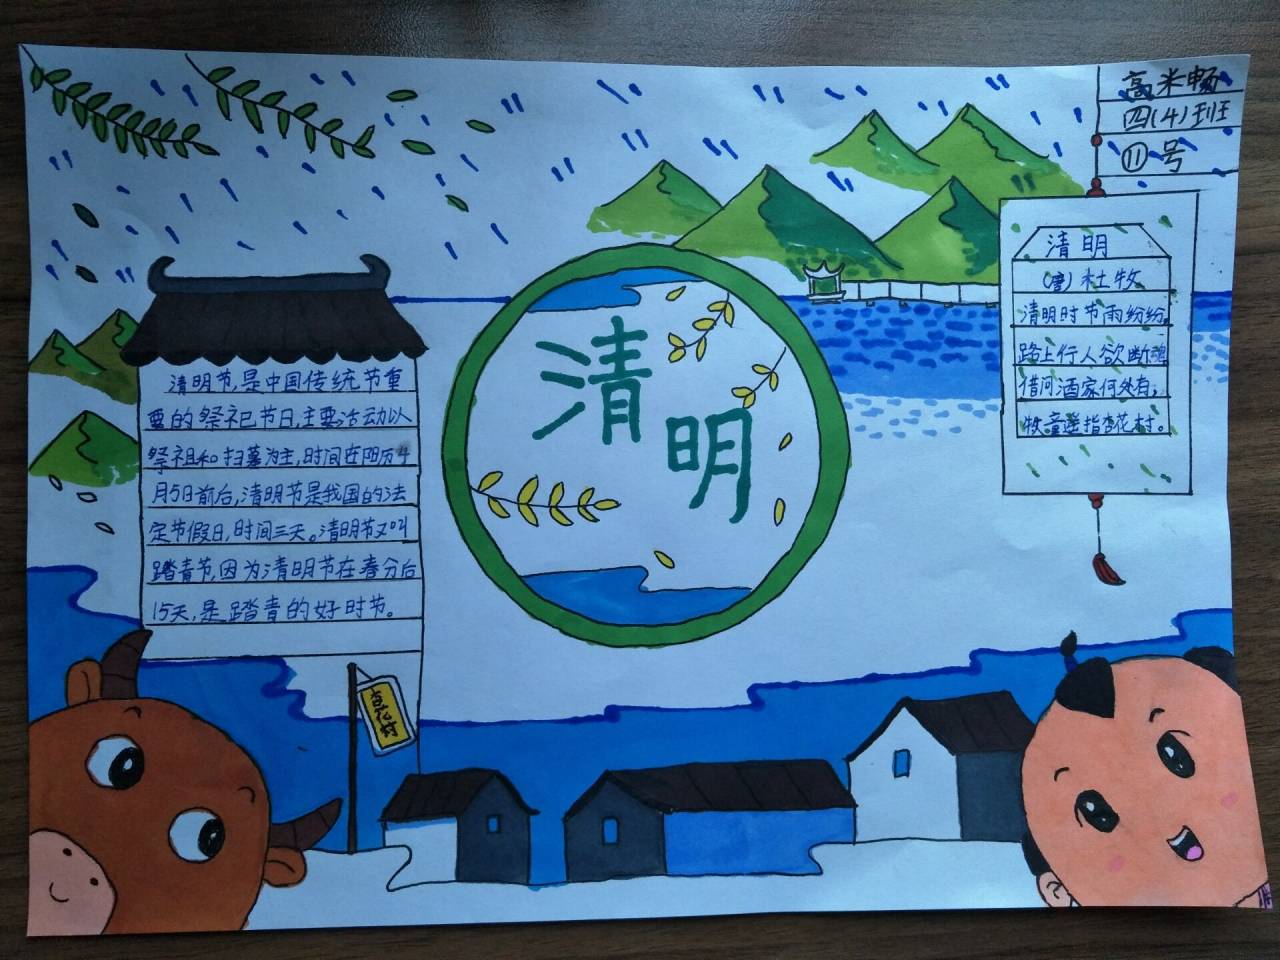 高米畅
四(4)班
⑪号
清明
清明节,是中国传统节重
要的祭祀节日,主要活动以
祭祖和扫墓为主,时间在阳历4
月5日前后,清明节是我国的法
定节假日,时间三天。清明节又叫
踏青节,因为清明节在春分后
15天,是踏青的好时节。
清明
(唐)杜牧
清明时节雨纷纷,
路上行人欲断魂
借问酒家何处有,
牧童遥指杏花村。
杏花村